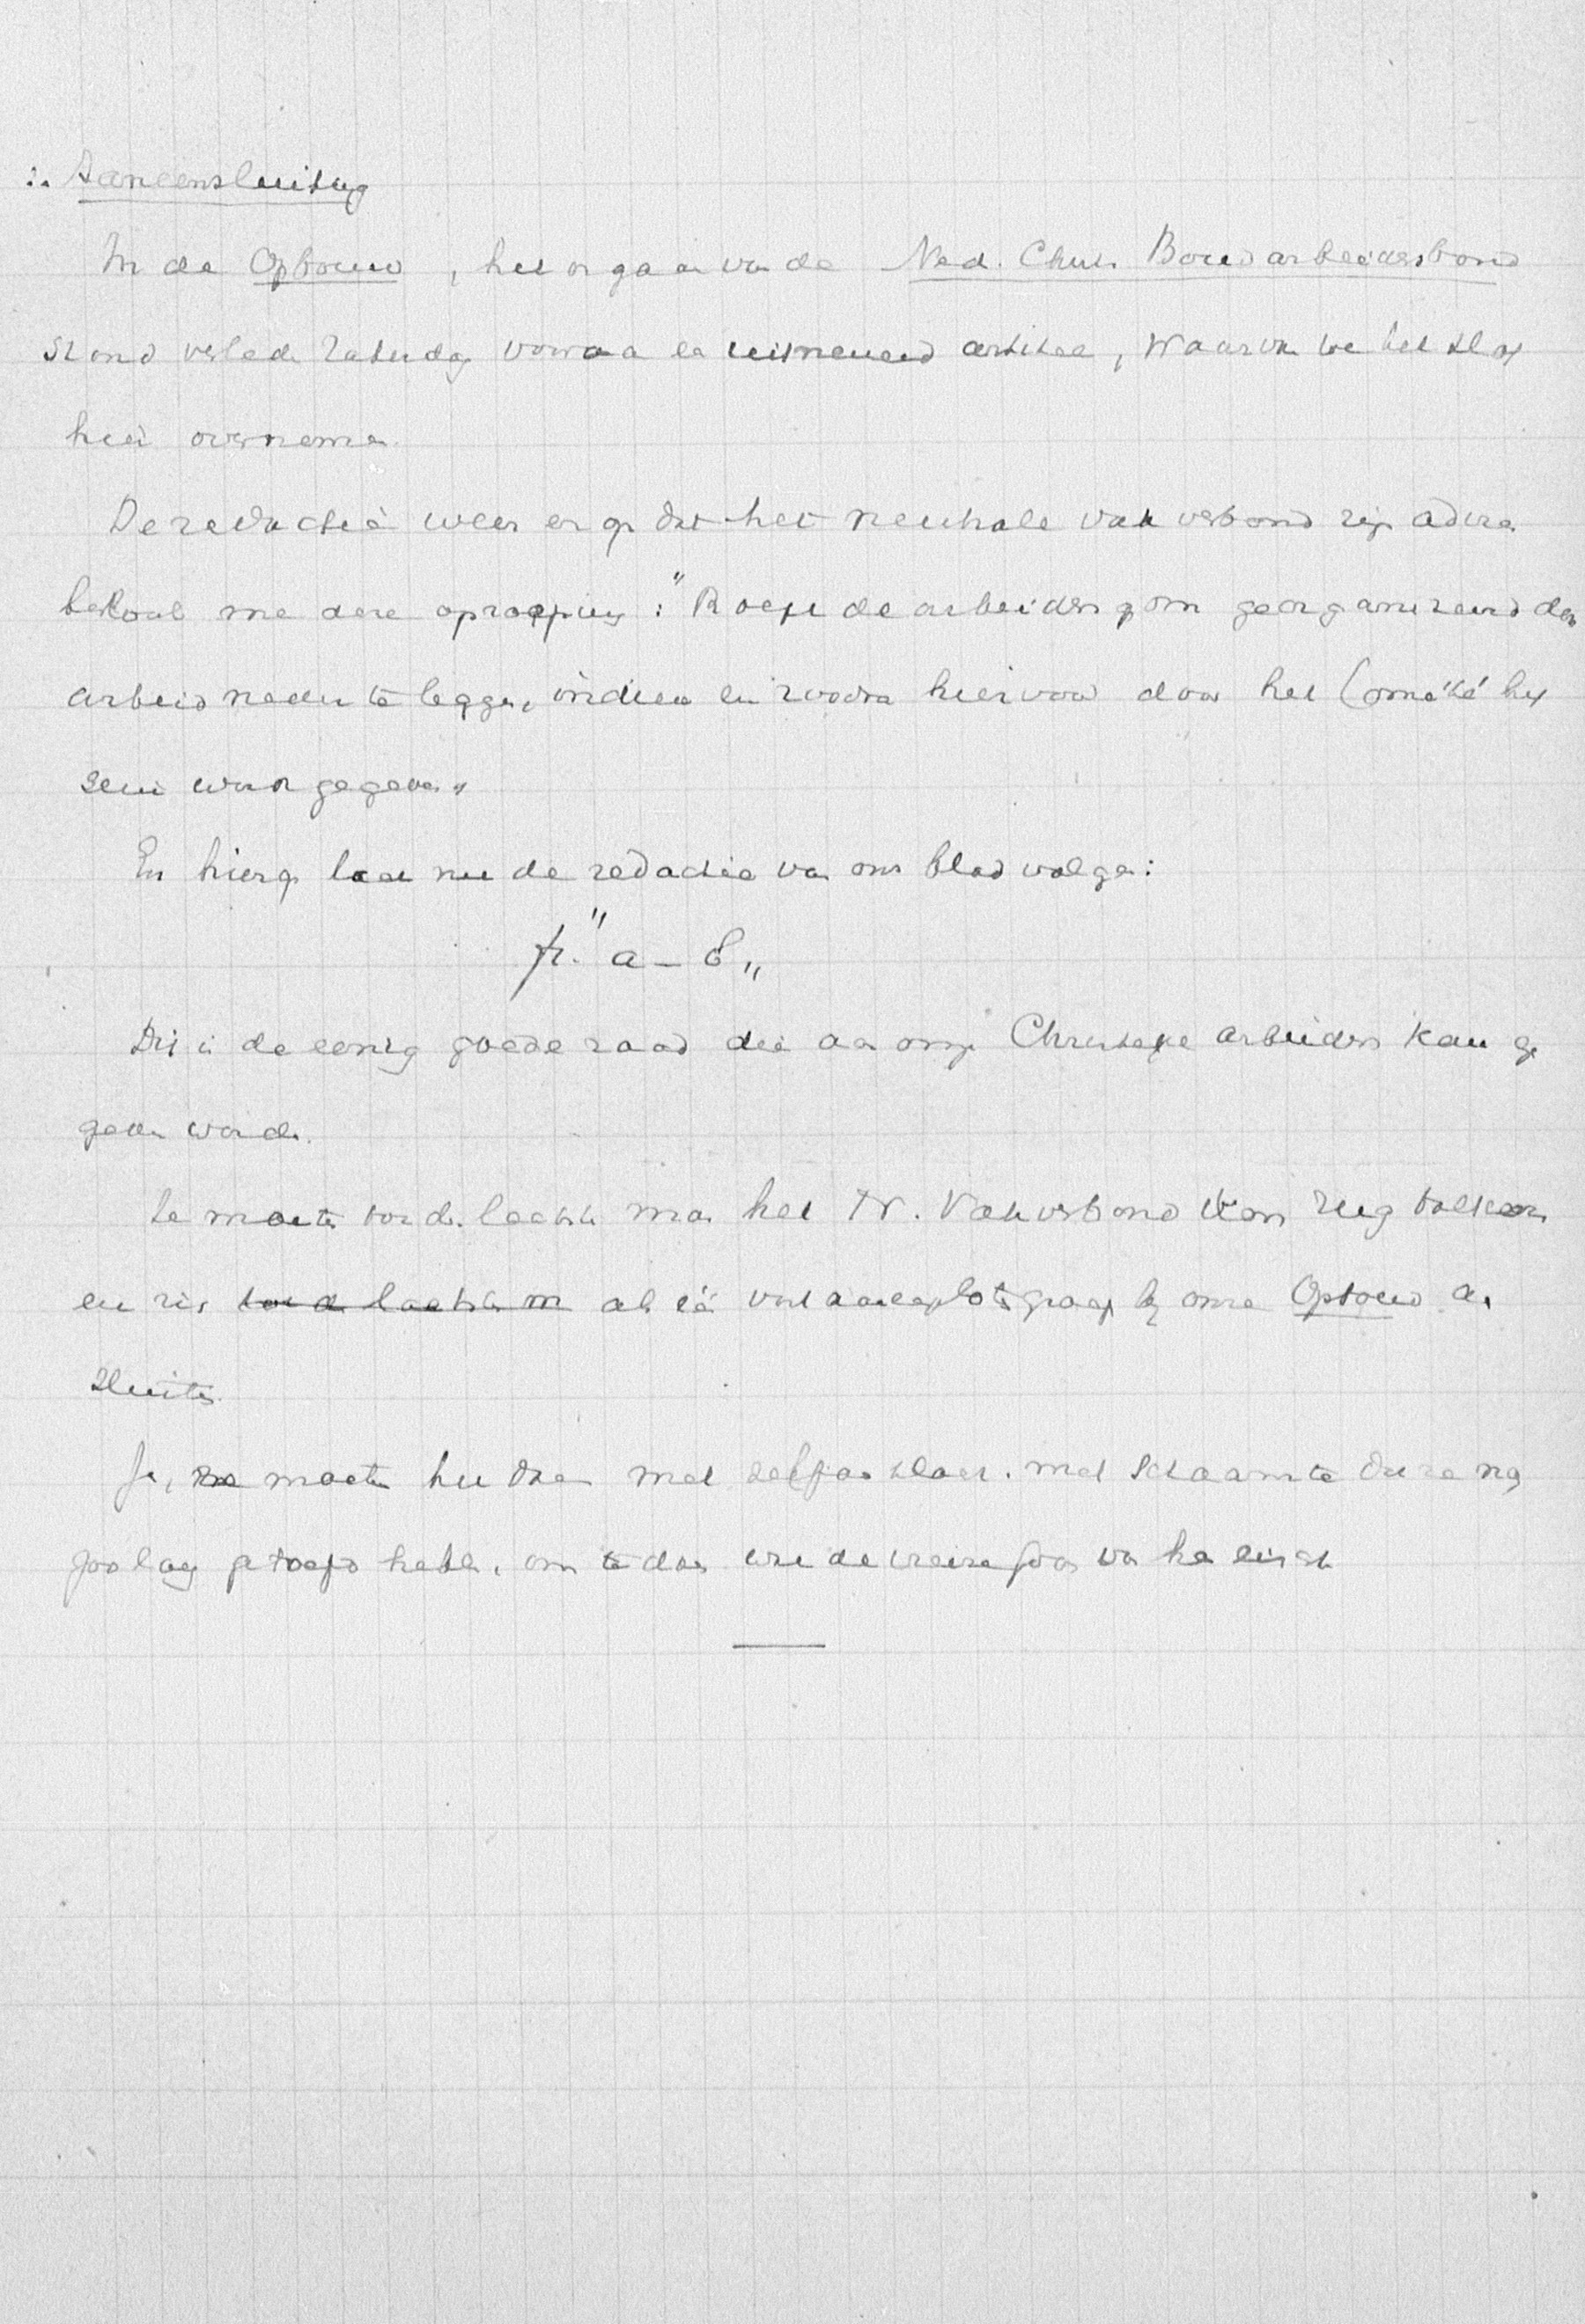 :. Aaneensluiting
In de Opbouw, het orgaan van de Ned. Chr. Bouwarbeidersbond
stond verleden Zaterdag vooraan een uitnemend artikel, waarvan we het slot
hier overnemen.
De redactie wees er op dat het neutrale vakverbond zijn
besloot met deze oproeping: "Roept de arbeiders op om georganiseerd den
arbeid neder te leggen, indien hiervoor door het Comité het
sein wordt gegeven"
En hierop laat nu de redactie van ons blad volgen:
fr. "a – b"
Dit is de eenig goede raad die aan onze Christelijke arbeiders kan ge
geven worden.
Ze moeten tot den laatsten man het N. Vakverbond den rug toekeeren
en zich tot den laatsten m als één vast aaneengesloten groep bij onze Opbouw aan
sluiten.
Ja, ze moeten het doen met met schaamte dat ze nog
zoo lang getoefd hebben, om te doen wat de van hen eischt